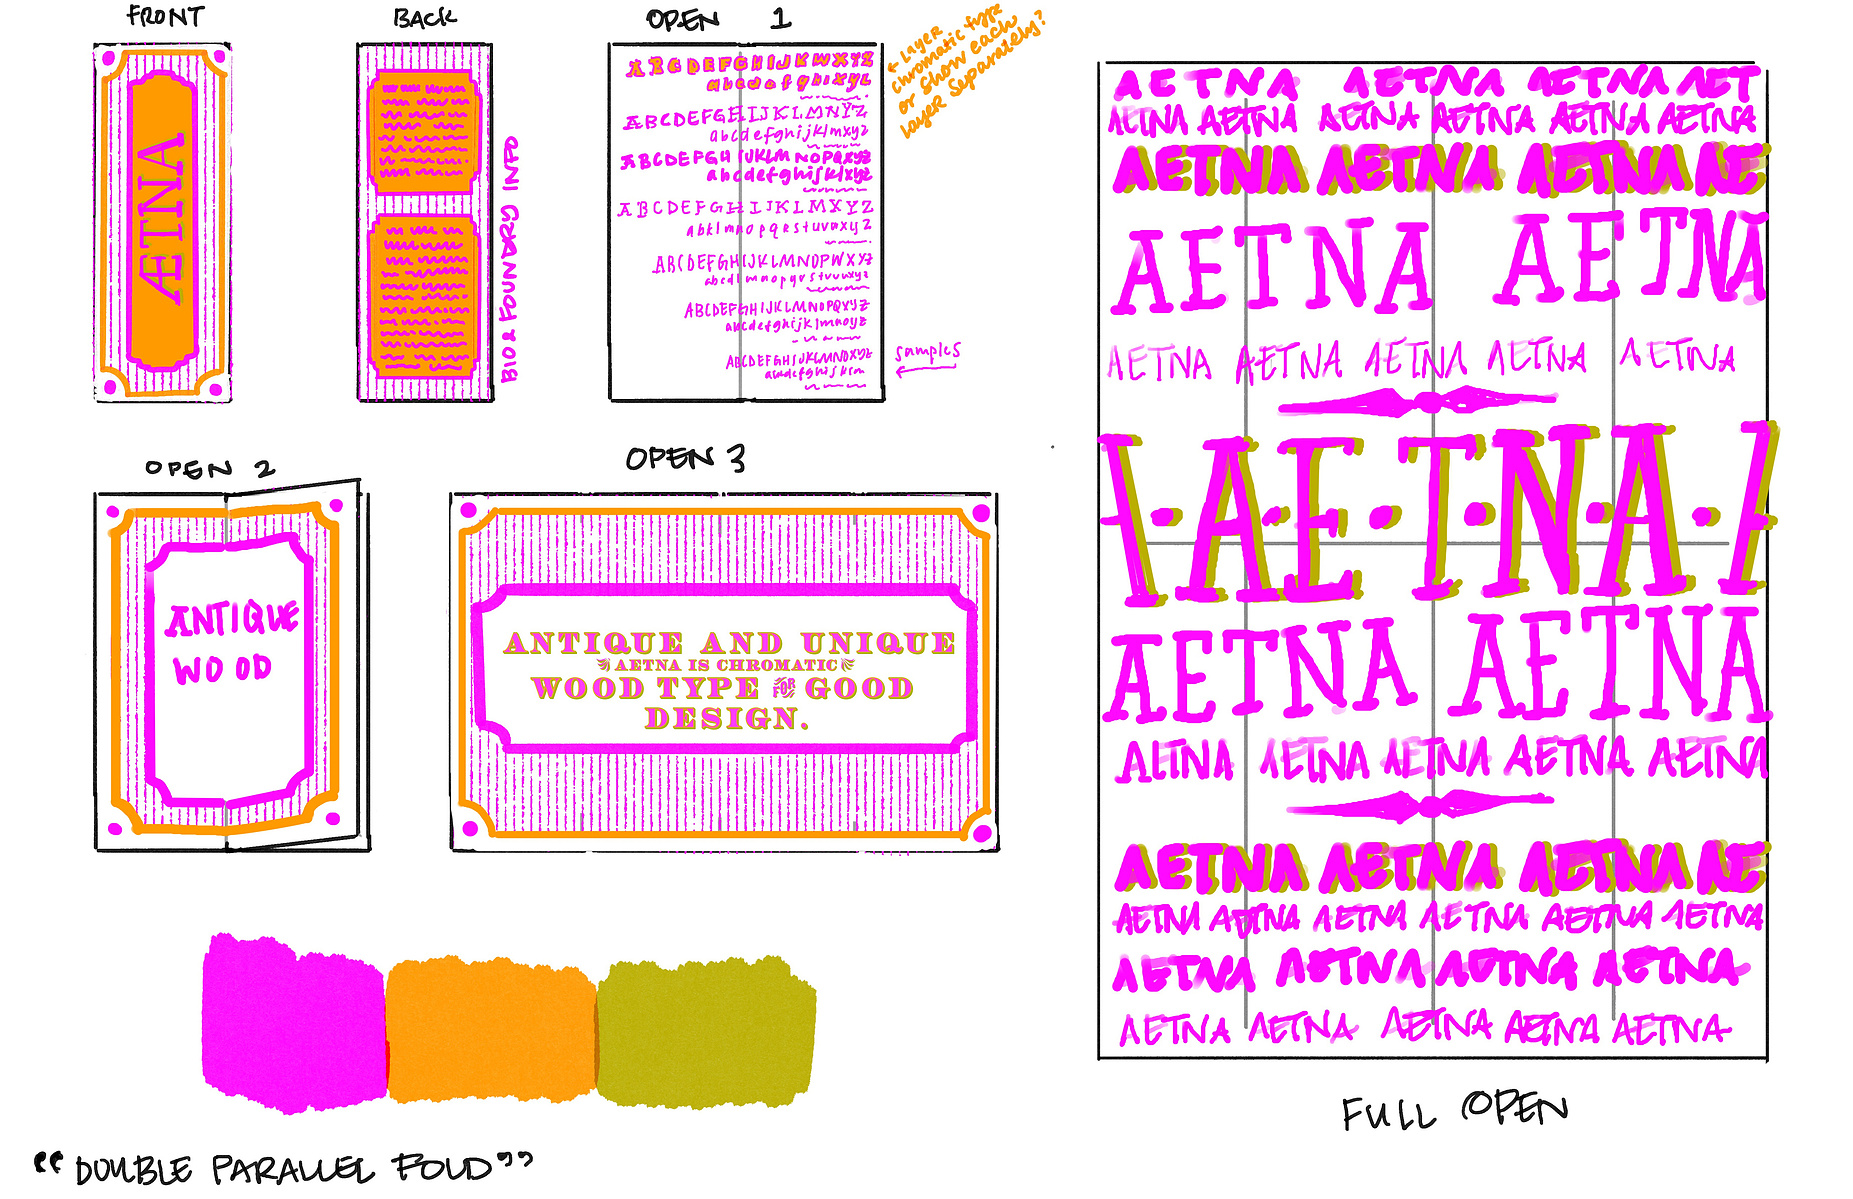 FRONT
ÆTNA
BACK
BIO & FOUNDRY INFO
OPEN 1
ABCDEFGHIJKWXYZ
ABCDEFGHIJKLMNYZ
abcdefghijklmxyz
ABCDEFGHIJKLMNOPQXYZ
abcdefghijklxyz
ABCDEFGHIJKLMXYZ
ABCDEFGHIJKLMNOPWXYZ
ABCDEFGHIJKLMNOPQXYZ
← LAYER
chromatic type
or show each
layer separately?
samples
OPEN 2
ANTIQUE
WOOD
OPEN 3
ANTIQUE AND UNIQUE
AETNA IS CHROMATIC
WOOD TYPE FOR GOOD
DESIGN.
"DOUBLE PARALLEL FOLD"
AETNA AETNA AETNA AET
AETNA AETNA AETNA AETNA AETNA AETNA
AETNA AETNA AETNA AE
AETNA AETNA
AETNA AETNA AETNA AETNA AETNA
A·E·T·N·A
AETNA AETNA
AETNA AETNA AETNA AETNA AETNA
AETNA AETNA AETNA AE
AETNA AETNA AETNA AETNA AETNA AETNA
AETNA AETNA AETNA AETNA
AETNA AETNA AETNA AETNA AETNA
FULL OPEN